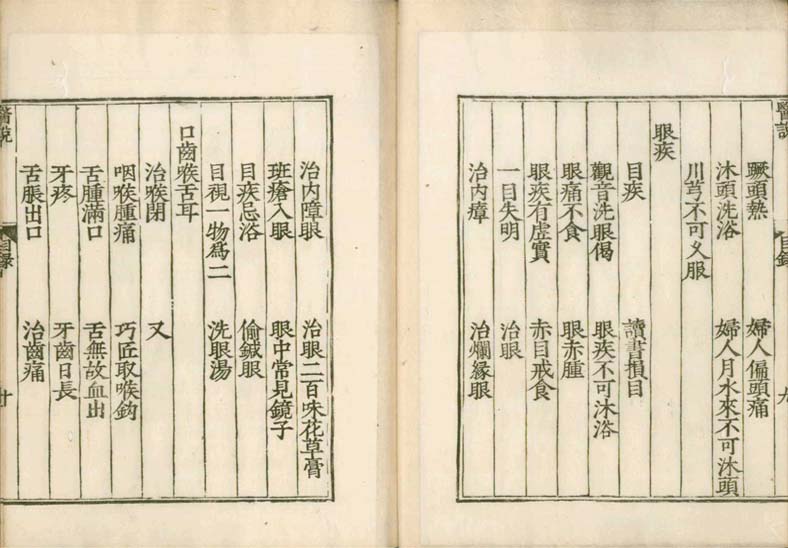 醫說
目錄
九
蹶頭熱
婦人偏頭痛
沐頭洗浴
婦人月水來不可沐頭
川芎不可乆服
眼疾
目疾
讀書損目
觀音洗眼偈
眼疾不可沐浴
眼痛不食
眼赤腫
眼疾有虛實
赤目戒食
一目失明
治眼
治内瘴
治爛緣眼
治内障眼
治眼二百味花草膏
斑瘡入眼
眼中常見鏡子
目疾忌浴
偷鍼眼
目視一物爲二
洗眼湯
口齒喉舌耳
治喉閉
又
咽喉腫痛
巧匠取喉鈎
舌腫滿口
舌無故血出
牙疼
牙齒日長
舌脹出口
治齒痛
醫說
目錄
十